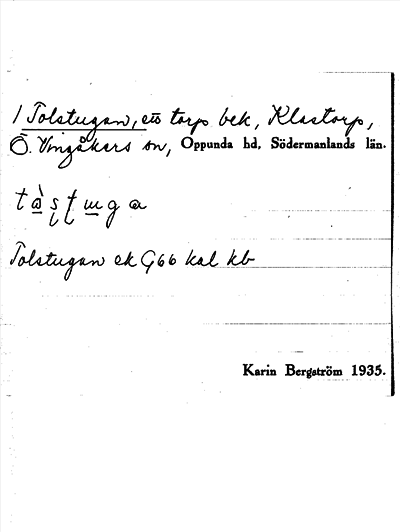 / Tolstugan, ett torp bek, Klastorp,
Ö. Vingåkers sn, Oppunda hd, Södermanlands län.
Tolstugan ek G66 kal kb
Karin Bergström 1935.